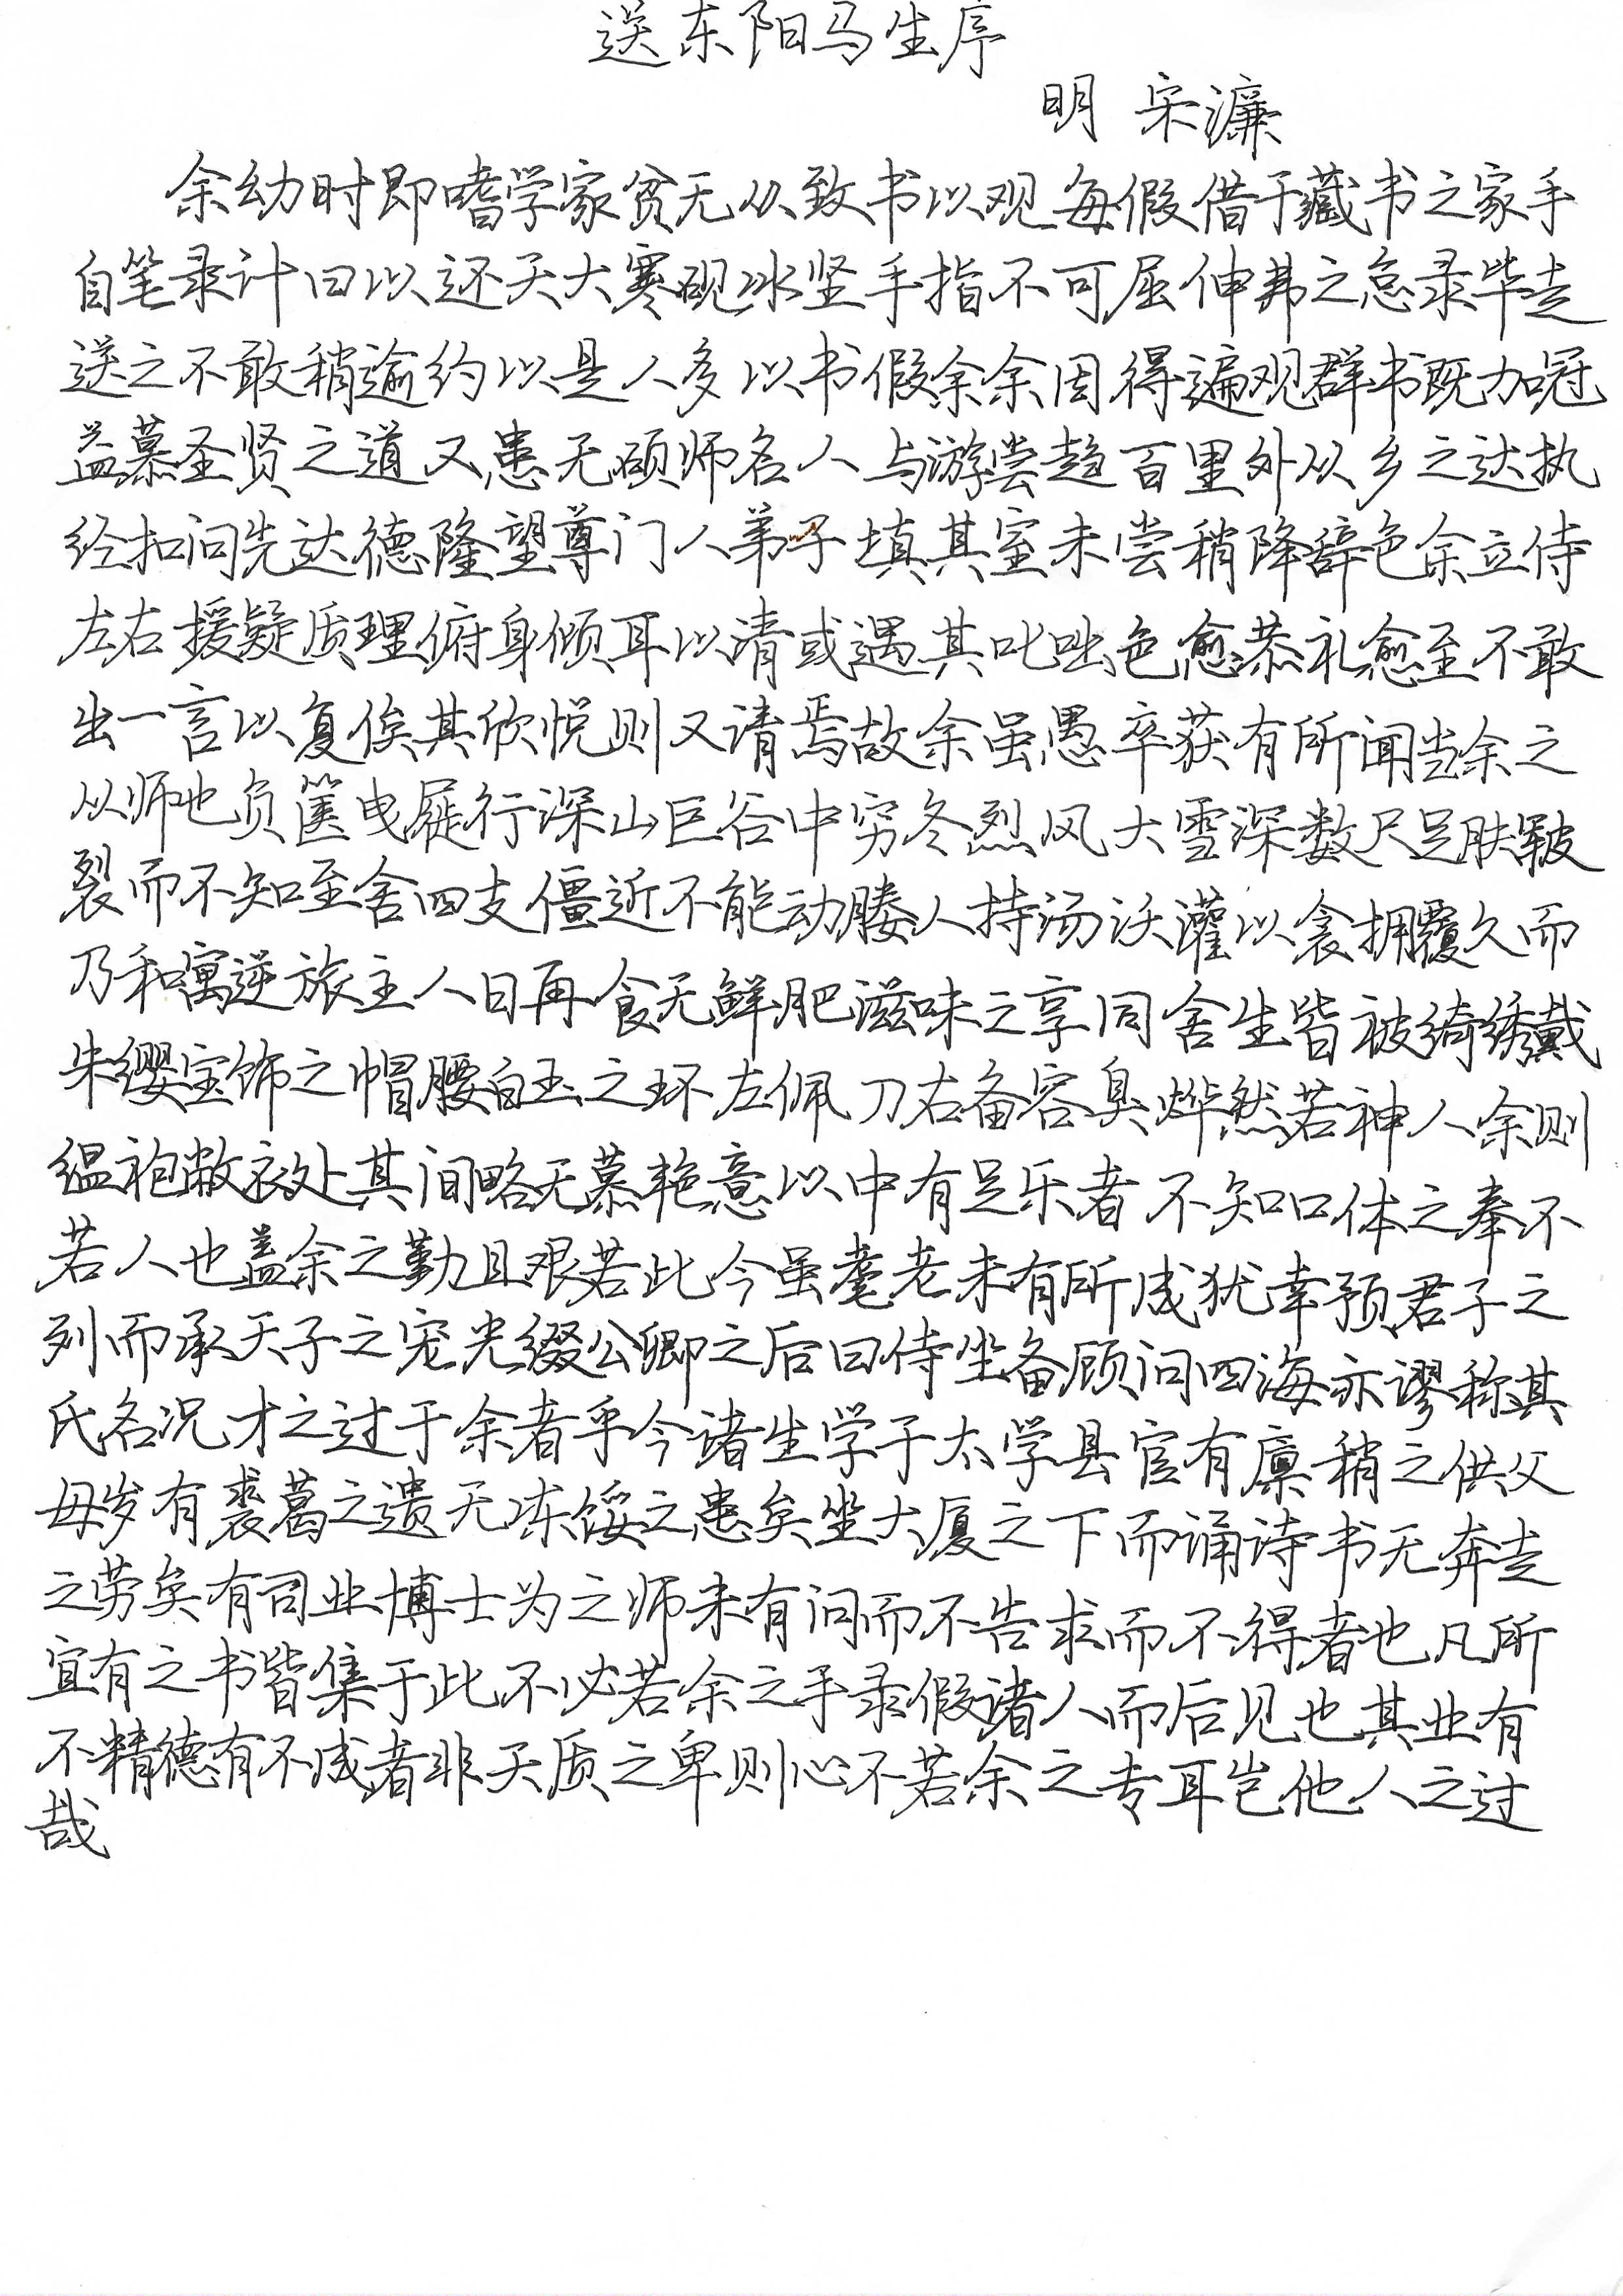 送东阳马生序
明 宋濂
余幼时即嗜学家贫无从致书以观每假借于藏书之家手
自笔录计日以还天大寒砚冰坚手指不可屈伸弗之怠录毕走
送之不敢稍逾约以是人多以书假余余因得遍观群书既加冠
益慕圣贤之道又患无硕师名人与游尝趋百里外从乡之达执
经扣问先达德隆望尊门人弟子填其室未尝稍降辞色余立侍
左右援疑质理俯身倾耳以请或遇其叱咄色愈恭礼愈至不敢
出一言以复俟其欣悦则又请焉故余虽愚卒获有所闻当余之
从师也负箧曳屣行深山巨谷中穷冬烈风大雪深数尺足肤皲
裂而不知至舍四支僵近不能动媵人持汤沃灌以衾拥覆久而
乃和寓逆旅主人日再食无鲜肥滋味之享同舍生皆被绮绣戴
朱缨宝饰之帽腰白玉之环左佩刀右备容臭烨然若神人余则
缊袍敝衣处其间略无慕艳意以中有足乐者不知口体之奉不
若人也盖余之勤且艰若此今虽耄老未有所成犹幸预君子之
列而承天子之宠光缀公卿之后日侍坐备顾问四海亦谬称其
氏名况才之过于余者乎今诸生学于太学县官有廪稍之供父
母岁有裘葛之遗无冻馁之患矣坐大厦之下而诵诗书无奔走
之劳矣有司业博士为之师未有问而不告求而不得者也凡所
宜有之书皆集于此不必若余之手录假诸人而后见也其业有
不精德有不成者非天质之卑则心不若余之专耳岂他人之过
哉